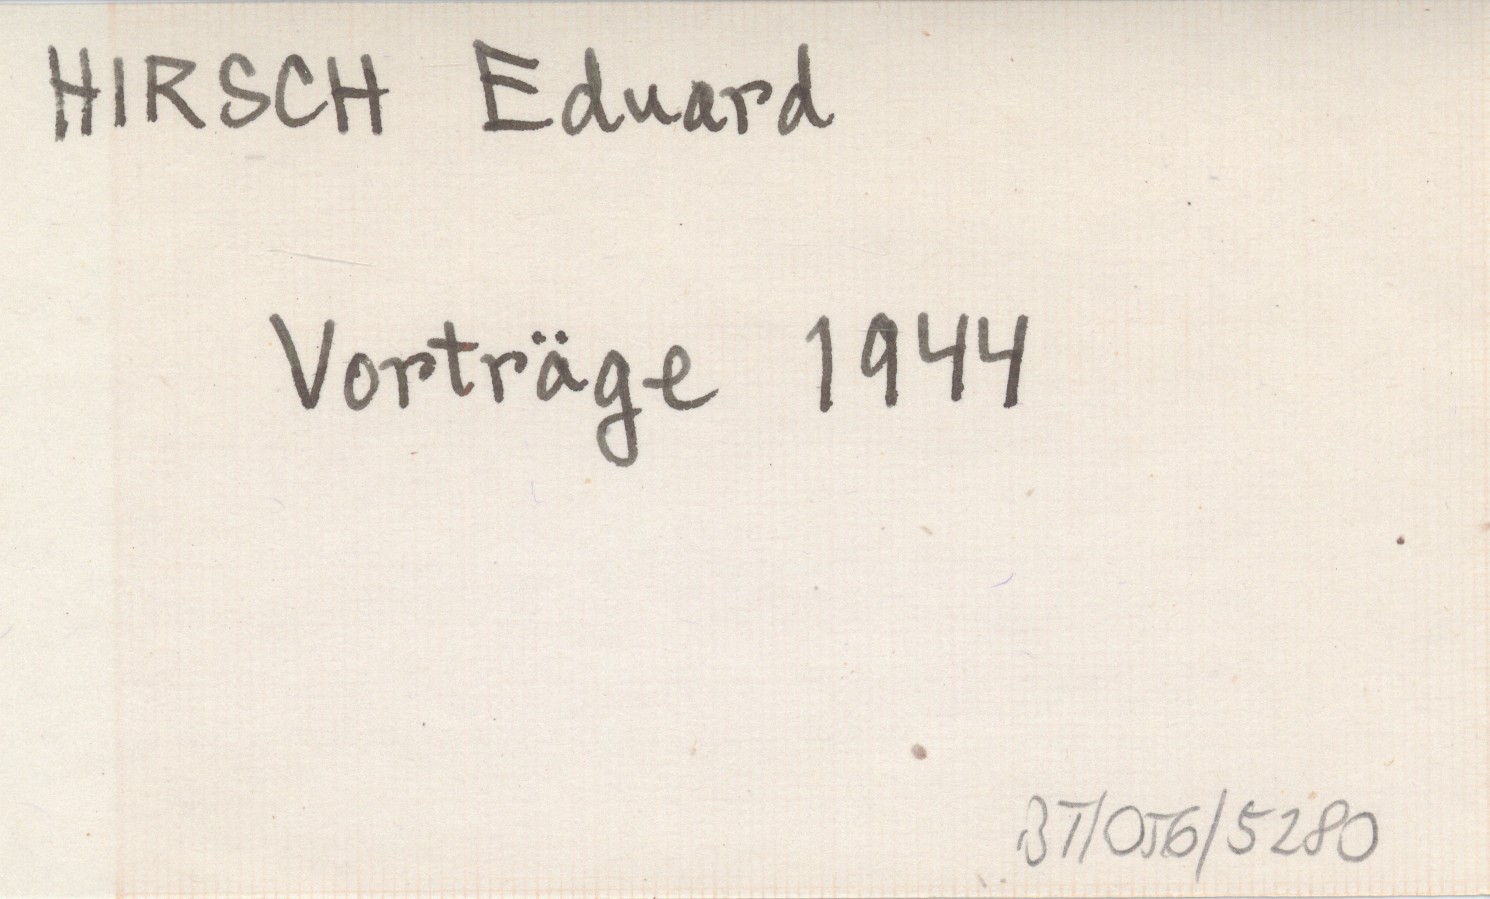 HIRSCH Eduard
Vorträge 1944
BT/056/5280